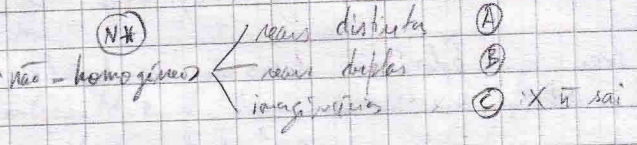 N*
não-homogéneos
reais distintas A
reais duplas B
imaginárias C : X ñ sai